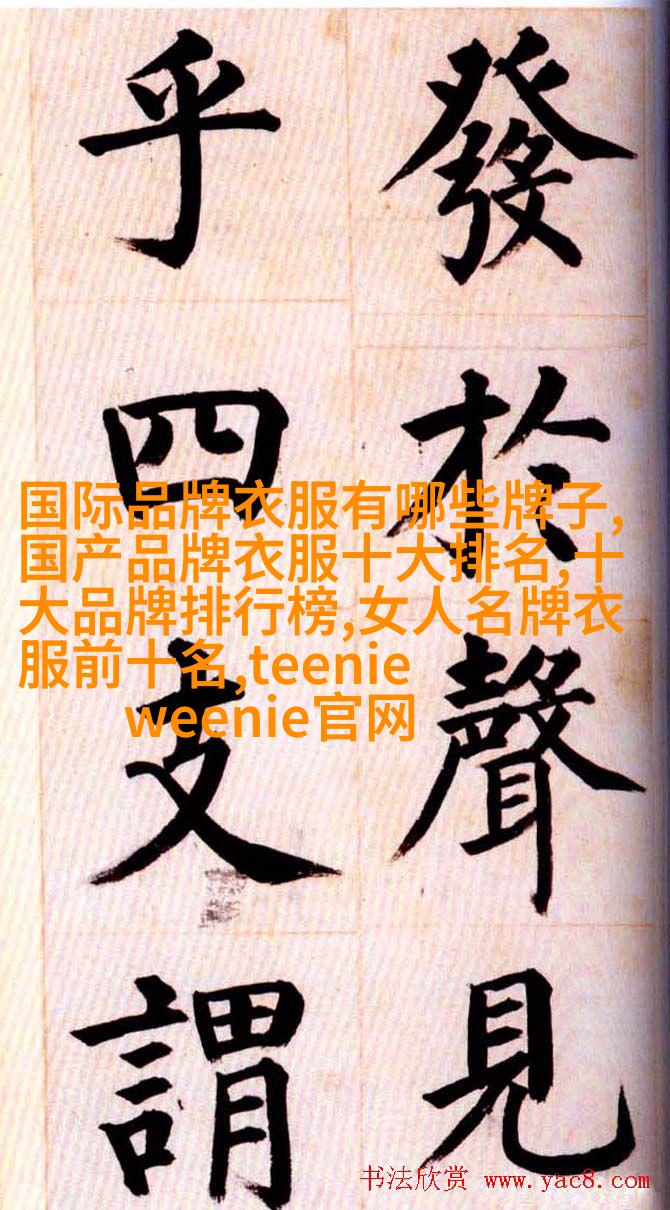 發於聲見
乎四支謂
国际品牌衣服有哪些牌子,
国产品牌衣服十大排名,十
大品牌排行榜,女人名牌衣
服前十名,teenie
weenie官网
书法欣赏 www.yac8.com